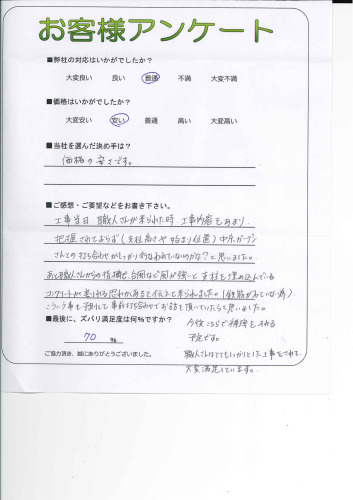 お客様アンケート
■弊社の対応はいかがでしたか？
大変良い 良い 普通 不満 大変不満
■価格はいかがでしたか？
大変安い 安い 普通 高い 大変高い
■当社を選んだ決め手は？
価格の安さです。
■ご感想・ご要望などをお書き下さい。
工事当日 職人さんが来られた時、工事内容をあまり
把握されておらず(支柱高さや始まり位置)中京ガーデン
さんとの打ち合わせがしっかり行なわれていないのかな？と思いました。
あと職人さんからの指摘で、台風など風が強いと支柱を埋め込んでいる
コンクリートが割れる恐れがあると伝えて来られました。(鉄筋が入っていない為)
こういう事も予測して事前打ち合わせでお話を頂いていたらと思いました。
■最後に、ズバリ満足度は何%ですか？
今後こちらで補強を入れる
70 %
予定です。
ご協力頂き、誠にありがとうございました。
職人さんはとてもしっかりとした工事をされて、
大変満足しています。